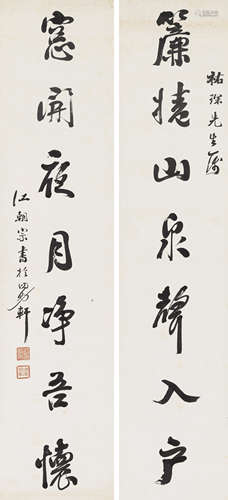 祐琛先生属
簾捲山泉聲入户
窓開夜月净吾懷
江朝宗書於
軒